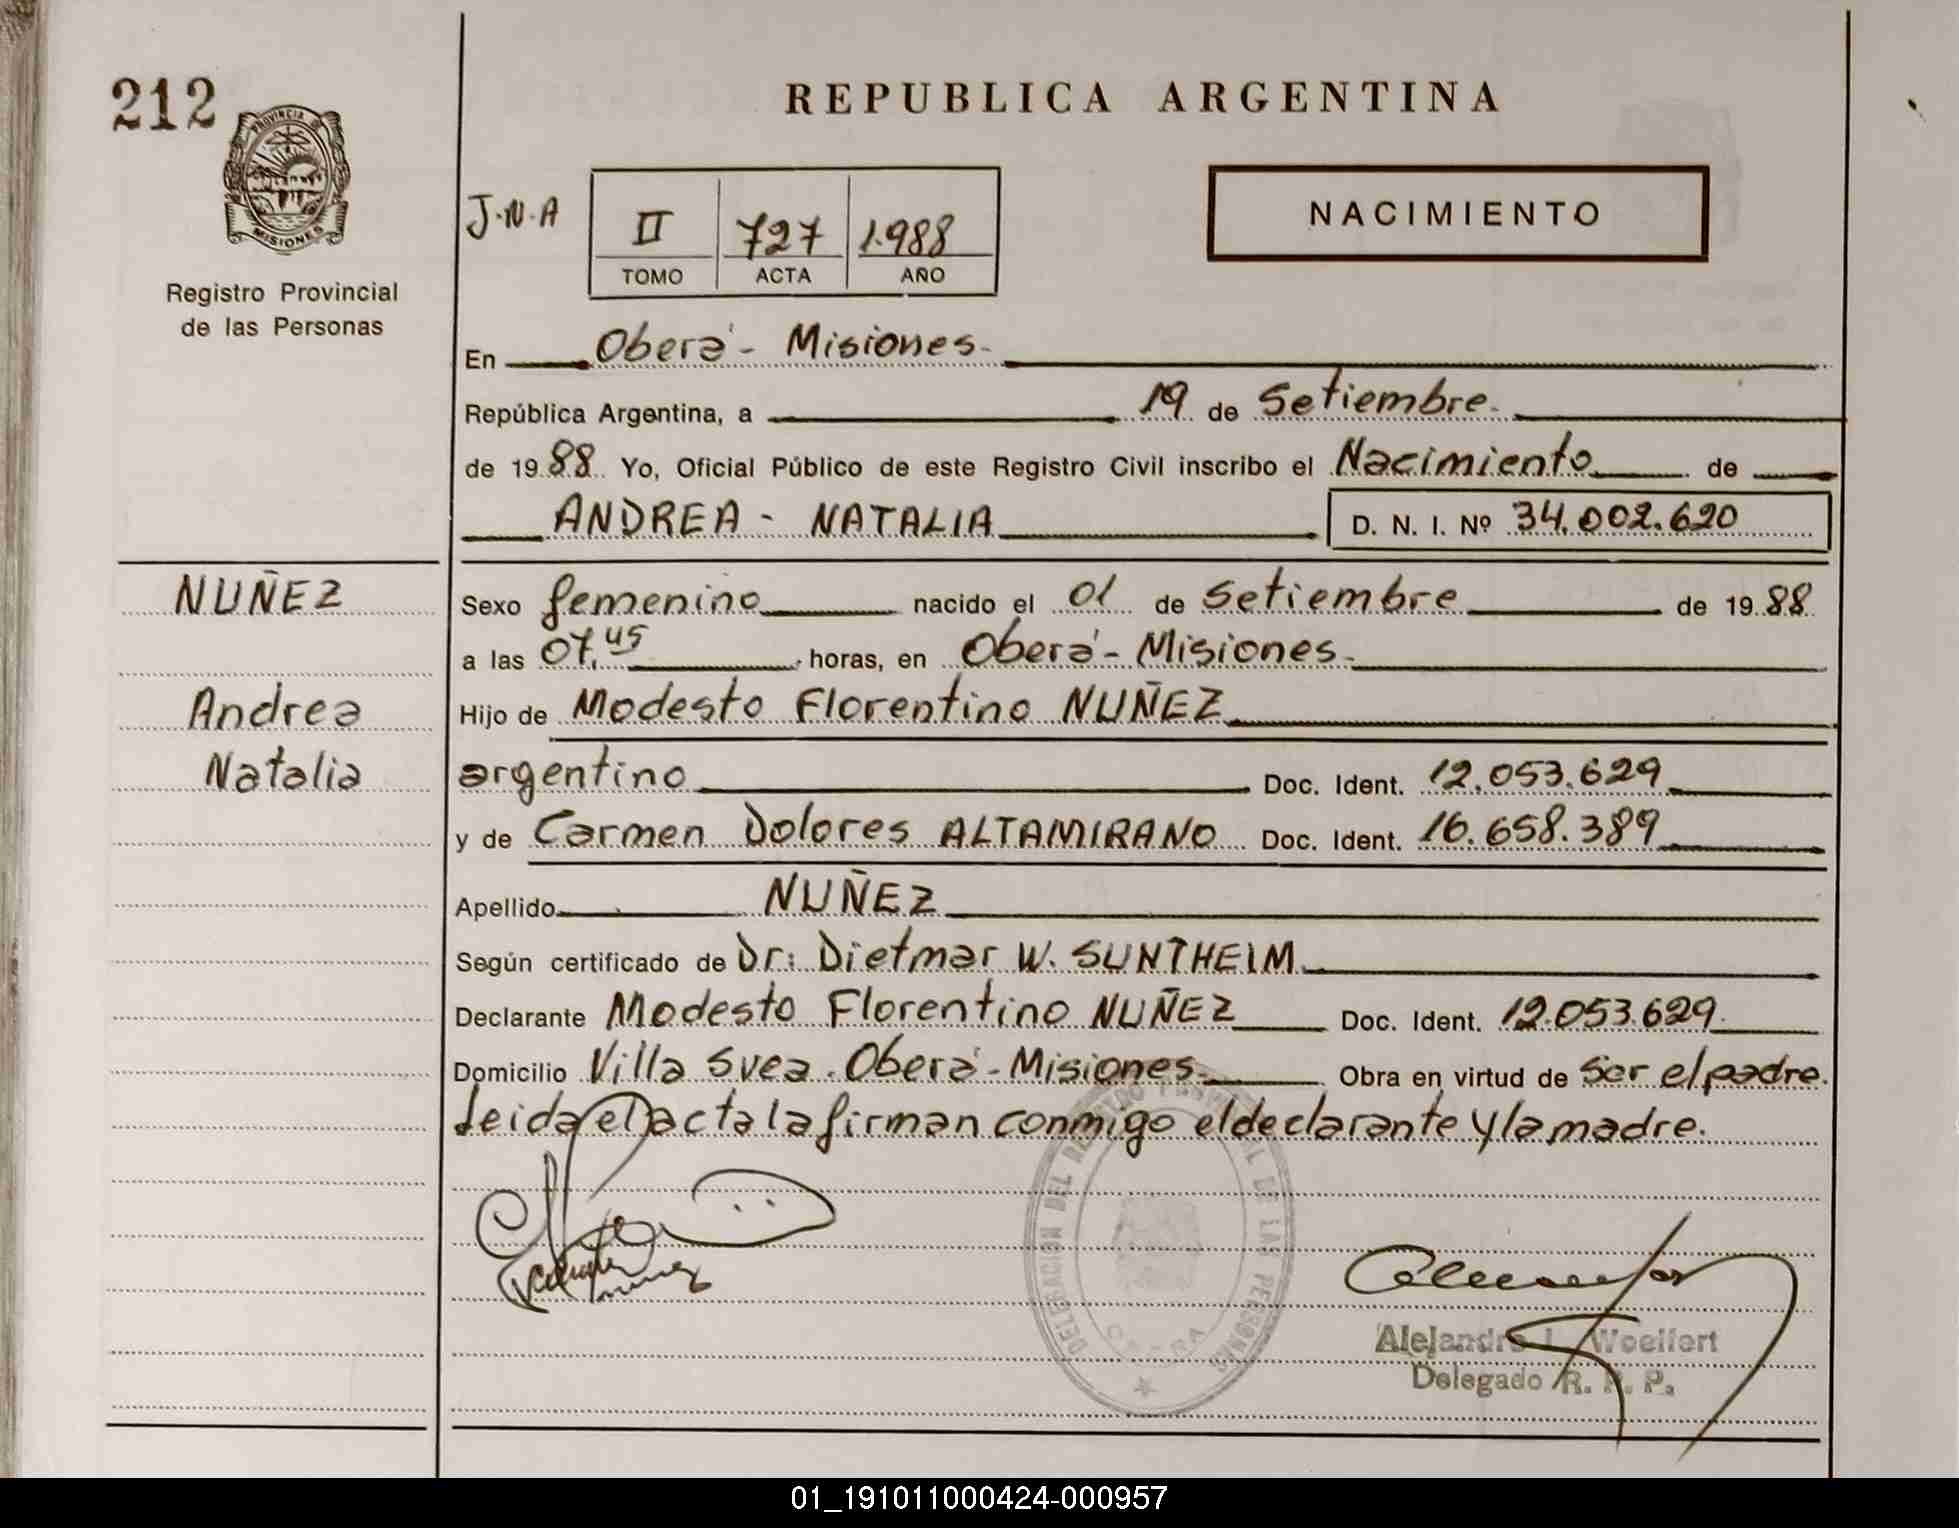 212
PROVINCIA
MISIONES
Registro Provincial
de las Personas
REPUBLICA ARGENTINA
J.N.A
II 727 1.988
TOMO ACTA AÑO
NACIMIENTO
En Oberá - Misiones.
República Argentina, a 19 de Setiembre.
de 1988 Yo, Oficial Público de este Registro Civil inscribo el Nacimiento de
ANDREA - NATALIA D. N. I. Nº 34.002.620
NUÑEZ
Andrea
Natalia
Sexo femenino nacido el 01 de Setiembre de 1988
a las 07,45 horas, en Oberá - Misiones.
Hijo de Modesto Florentino NUÑEZ
argentino Doc. Ident. 12.053.629
y de Carmen Dolores ALTAMIRANO Doc. Ident. 16.658.389
Apellido NUÑEZ
Según certificado de Dr: Dietmar W. SUNTHEIM
Declarante Modesto Florentino NUÑEZ Doc. Ident. 12.053.629
Domicilio Villa Svea. Oberá - Misiones. Obra en virtud de ser el padre.
Leida el acta la firman conmigo el declarante y la madre.
DELEGACION DEL REGISTRO PROVINCIAL DE LAS PERSONAS
Alejandro L. Woelfert
Delegado R. P. P.
01_191011000424-000957